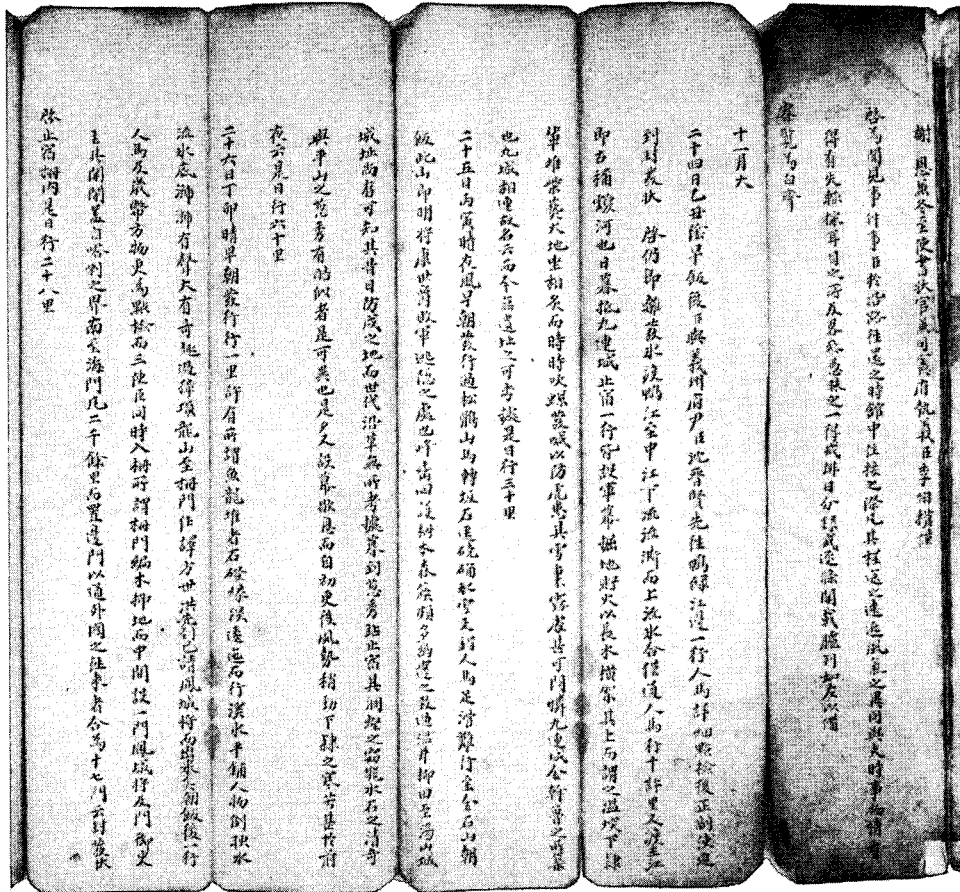 謝 恩兼冬至使書狀官兼司憲府執義臣李謹
啓爲聞見事件事臣於沿路往還之時館中住接之際凡其程途之遠近風氣之異同與夫時事物情有
得有失輒採耳目之所及之一得或排日分錄或逐條開載臚列如左以備
睿覽爲白齊
十一月大
二十四日乙丑陰早飯後臣與義州府尹臣沈晉賢先往鴨綠江邊一行人馬詳細點檢後正副使追
到封發狀 啓仍卽離發氷渡鴨江至中江下流流澌而上流氷合僅通人馬行十許里又渡三江
卽古稱靉河也日暮抵九連城止宿一行皆設軍幕掘地財火以長木橫架其上而謂之溫堗下隸
輩堆柴爇火地坐相炙而時時吹螺發喊以防虎患其雪裏露處甚可悶憐九連城金幹魯之所築
也九城相連故名云而今無遺址之可考識是日行三十里
二十五日丙寅時夜風早朝發行過松鶻山馬轉坂石逕磽确氷雪又人馬足滑難行至金石山朝
飯此山卽明將康世爵敗軍逃隱之處也峰巒回護樹木森蔚頗多過溫井柳田至湯山城
城址尙存可知其昔日防戍之地而世代沿革無所考據暮到葱秀站止宿其洞壑之窈窕水石之清奇
與平山之葱秀有酷似者是可異也是夕又設幕歇息而自初更後風勢稍動下隸之寒苦甚於前
夜云是日行六十里
二十六日丁卯晴早朝發行行一里許有所謂魚龍堆者石磴緣溪逶迤而行溪水平鋪人物倒映氷
流氷底有聲大有奇趣過項龍山至柵門任譯方世洪先到已請鳳城將而出來矣朝飯後一行
人馬及歲幣方物更爲點檢而三使臣同時入柵所謂柵門編木挿地而中間設一門鳳城將及門御史
主其開閉蓋自喀喇之界南至海門凡二千餘里而置邊門以通外國之往來者合爲十七門云封發狀
啓止宿柵內是日行二十八里